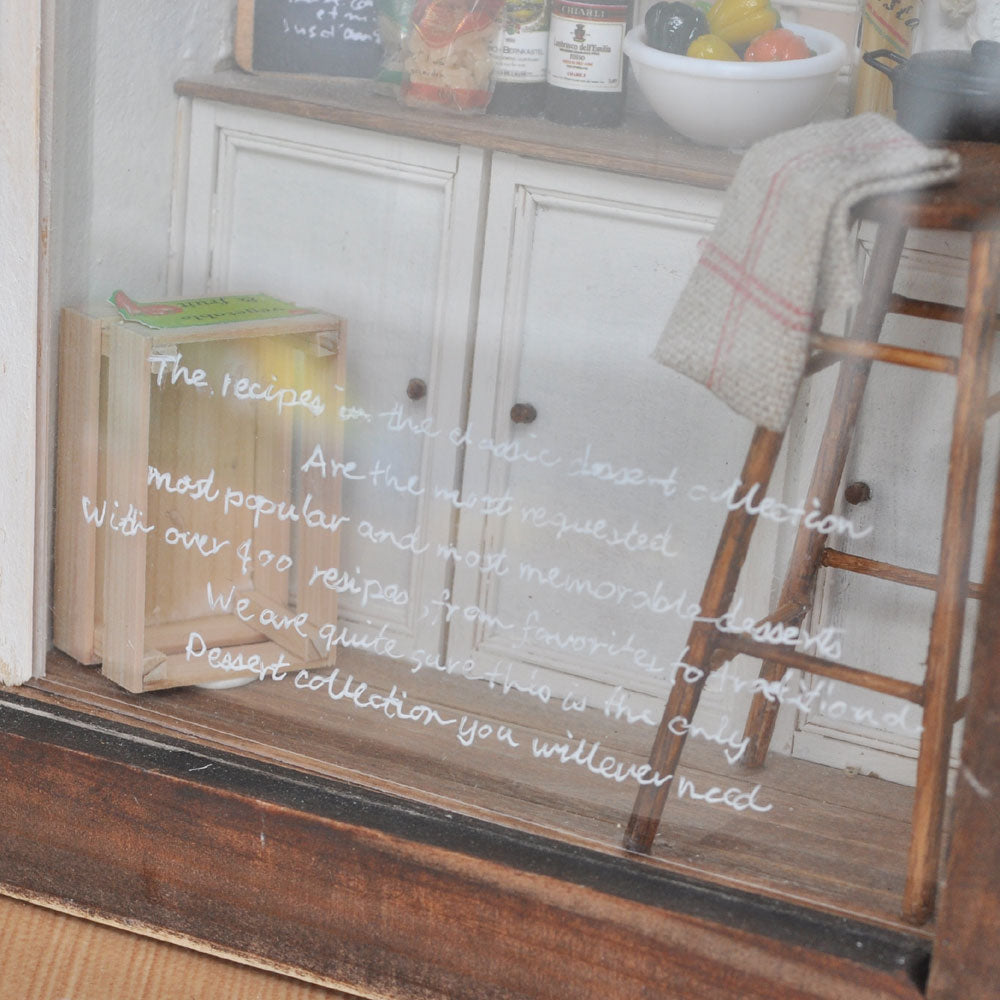 et m
BERNKASTEL
CHIARLI
Lambrusco dell'Emilia
ROSSO
vegetable
& fruit
The recipes in the classic dessert collection
Are the most requested
most popular and most memorable desserts
With over 400 resipes, from favorites to traditional
We are quite sure this is the only
Dessert collection you will ever need